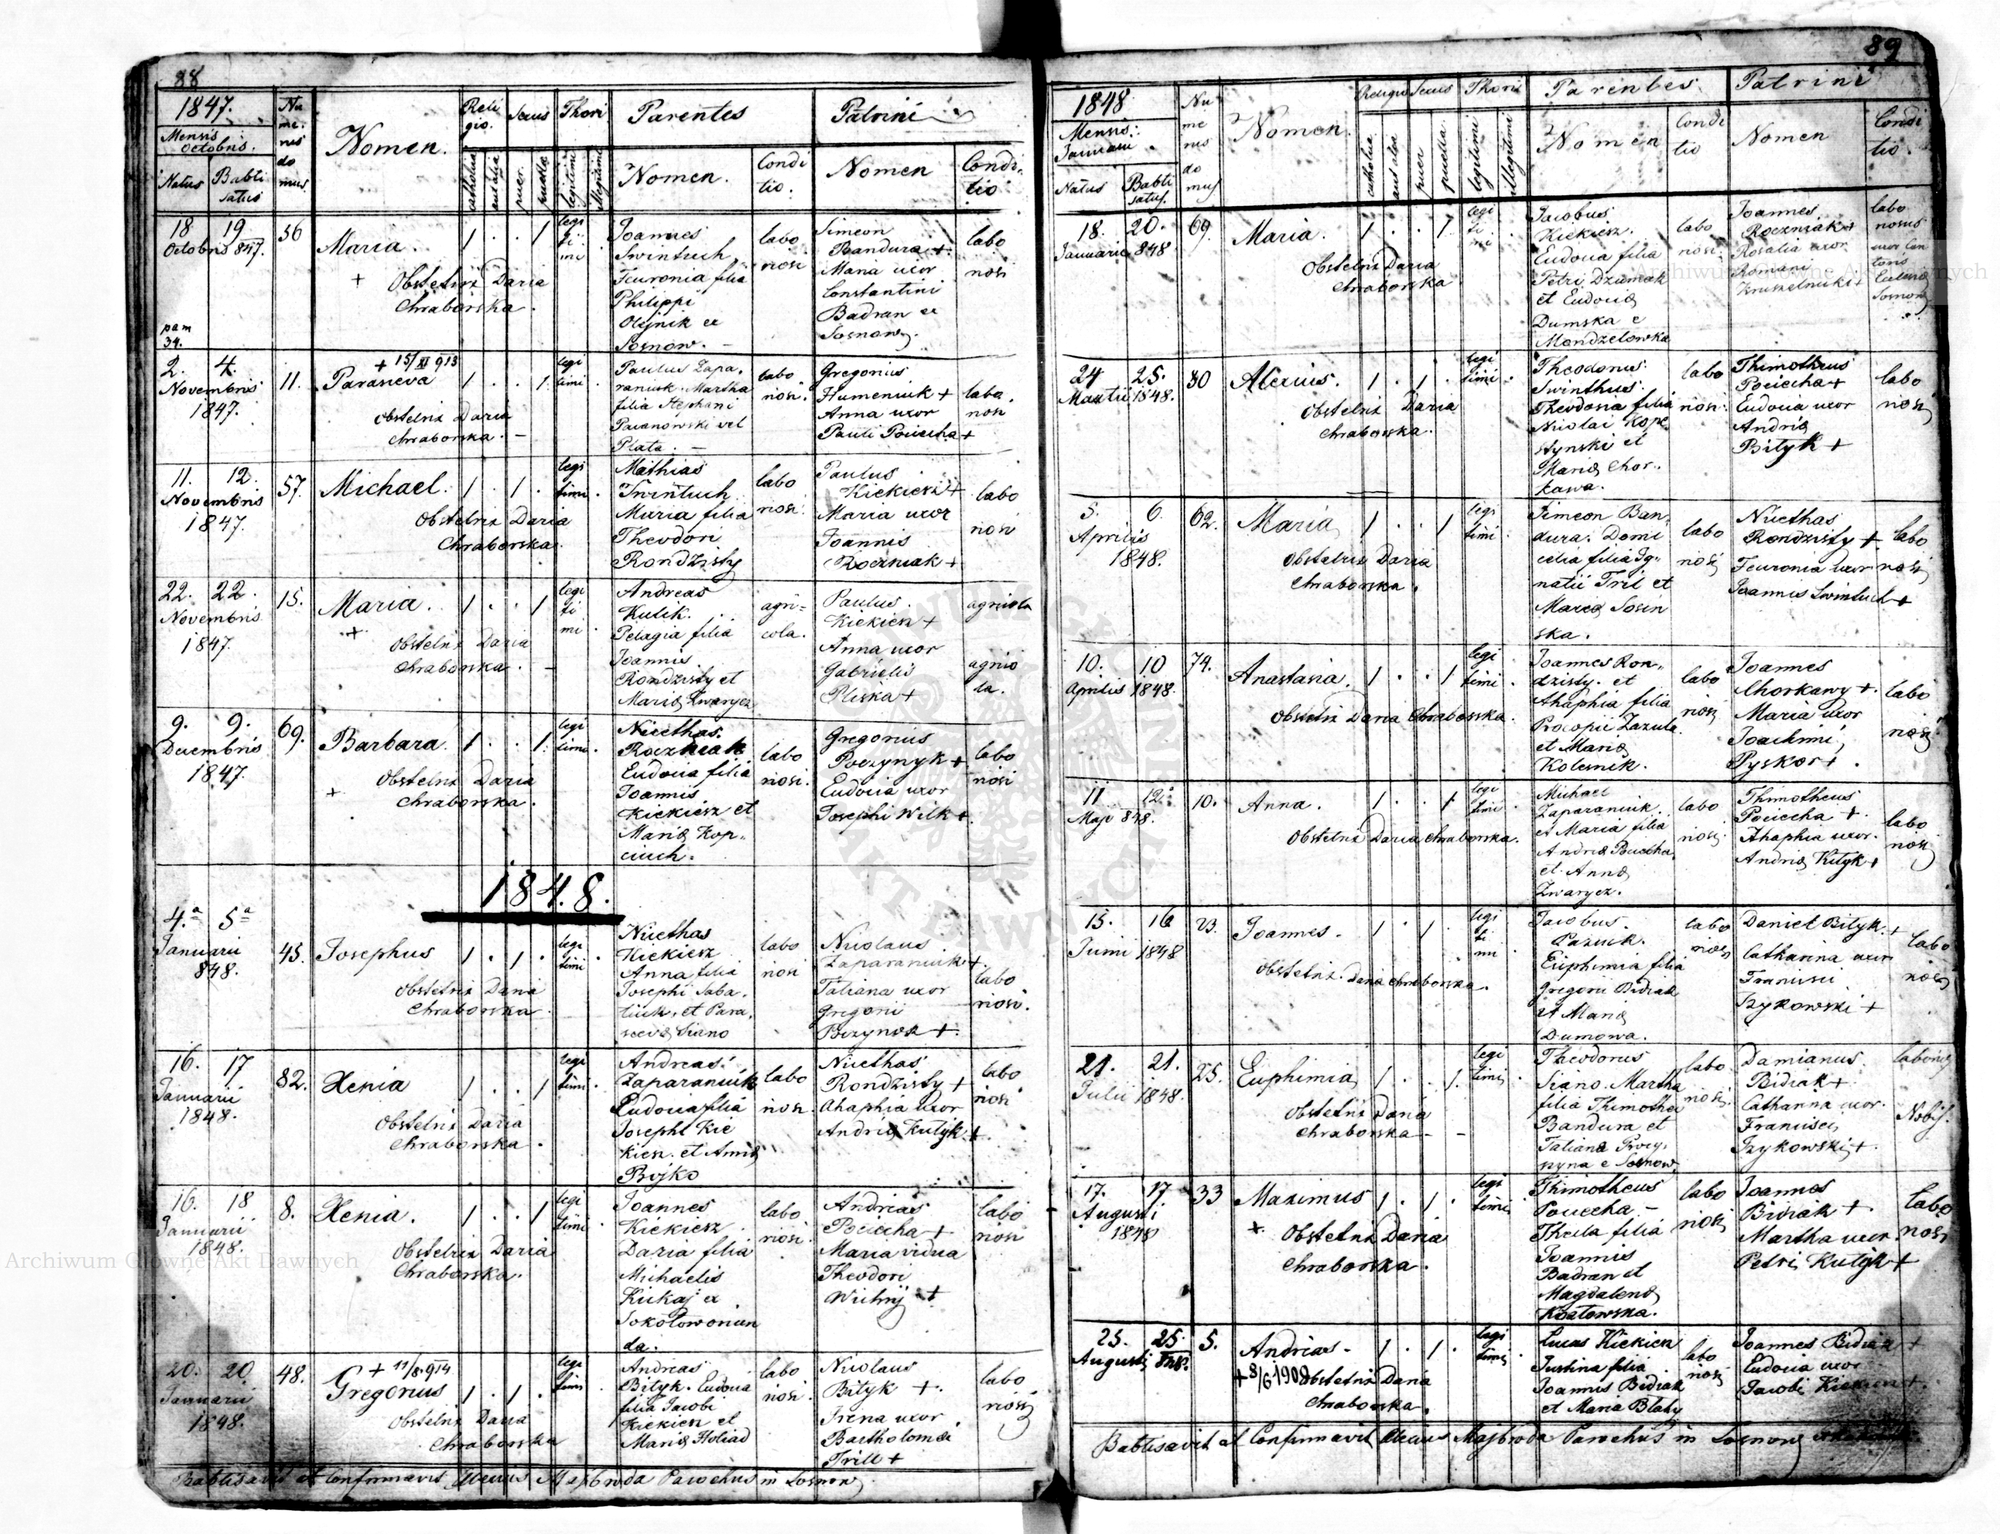 88
1847.
Mensis
Octobris.
Natus
Babti
satus
Nu
me.
rus
do
mus
Nomen.
Reli
gio.
catholica
aut alia
Sexus
puer.
puella
Thori
legitimi
illegitimi
Parentes
Nomen.
Condi
tio.
Patrini
Nomen
Condi.
tio.
18 19
Octobris 847.
56
Maria.
+
Obstetrix Daria
Chraborska.
1 . . 1
legi
ti.
mi
Joannes
Swintuch
Feuronia filia
Philippi
Olijnik ex
Sosnow. —
labo
riosi
Simeon
Bandura +
Maria uxor
Constantini
Badran ex
Sosnow.
labo
riosi
pam
34.
2. 4.
Novembris
1847.
11.
+ 15/XI 913
Parasceva
Obstetrix Daria
Chraborska. —
1 . . 1.
legi
timi.
Paulus Zapa,
raniuk. Martha
filia Stephani
Paranowski vel
Plata. —
labo
riosi.
Gregorius
Humeniuk +
Anna uxor
Pauli Pociecha +
labo.
riosi
11. 12.
Novembris
1847.
57.
Michael.
Obstetrix Daria
Chraborska.
1 . 1 .
legi
timi.
Mathias
Swintuch
Maria filia
Theodori
Rondzisty
labo
riosi.
Paulus
Kiekiesz +
Maria uxor
Joannis
Roczniak +
labo
riosi
22. 22.
Novembris
1847.
15.
Maria.
+
Obstetrix Daria
Chraborska. —
1 . . 1
legi
ti
mi.
Andreas
Kulik.
Pelagia filia
Joannis
Rondzisty et
Maria Zwarycz
agri-
cola.
Paulus
Kiekiesz +
Anna uxor
Gabrielis
Pliska +
agricola
agrico
la.
9. 9.
Decembris
1847.
69.
Barbara.
+
Obstetrix Daria
Chraborska.
1 . . 1.
legi
timi.
Nicethas
Roczniak
Eudocia filia
Joannis
Kiekiesz et
Maria Kop,,
ciuch.
labo
riosi.
Gregorius
Poczynyk +
Eudocia uxor
Josephi Wilk +
labo
riosi
1848.
4.a 5a
Januarii
848.
43.
Josephus
Obstetrix Daria
Chraborska.
1 . 1 .
legi
timi.
Nicethas
Kiekiesz
Anna filia
Josephi Saba.
tiuk. et Para,
sceva Siano
labo
riosi
Nicolaus
Zaparaniuk +.
Tatiana uxor
Gregorii
+
labo
riosi.
16. 17
Januarii
1848.
82.
Xenia
Obstetrix Daria
Chraborska.
1 . . 1
legi
timi.
Andreas.
Zaparaniuk
Eudocia filia
Josephi Kie
kiesz. et Anna
Bojko
labo
riosi.
Nicethas
Rondzisty +
Ahaphia uxor
Andrea Kutyk +
labo
riosi
16. 18
Januarii
1848.
8.
Xenia.
Obstetrix Daria
Chraborska.
1 . . 1
legi
timi.
Joannes
Kiekiesz
Daria filia
Michaelis
Kukaj ex
labo
riosi.
Andreas
Pociecha +
Maria vidua
Theodori
+
labo
riosi
20. 20.
Januarii
1848.
48.
+ 11/8.914
Gregorius
Obstetrix Daria
Chraborska
1 . 1 .
legi
timi
Andreas
Bityk. Eudocia
filia Jacobi
Kiekiesz et
Maria Holiad
labo
riosi.
Nicolaus
Bityk +.
Irena uxor
Bartholomei
Tril +
labo
riosi
Babtisavit et Confirmavit Alexius Majbroda Parochus in Sosnow.
89
1848
Mensis.
Januarii
Natus
Babti
satus.
Nu
me
rus
do
mus
Nomen.
Religio
catholica
aut alia
Sexus
puer
puella.
Thori
legitimi
illegitimi
Parentes.
Nomen
Condi
tio
Patrini
Nomen
Condi
tio.
18. 20.
Januarii 848
69.
Maria.
Obstetrix Daria
Chraborska.
1 . . 1.
legi
ti
mi
Jacobus
Kiekiesz.
Eudocia filia
Petri Dziamak
et Eudocia
Dumska e
labo
riosi.
Joannes
Roczniak +
Rosalia uxor
Romani
Kruszelnicki +
labo
riosus
24 25.
Martii 1848.
30
Alexius.
Obstetrix Daria
Chraborska.
1 . 1 .
legi
timi.
Theodorus
Swinthuc
Theodosia filia
Nicolai Kop,
Maria Chor.
kawa.
labo
riosi.
Thimotheus
Pociecha +
Eudocia uxor
Andrea
Bityk +
labo
riosi
5. 6.
Aprilis
1848.
62.
Maria
Obstetrix Daria
Chraborska.
1 . . 1
legi
timi.
Simeon Ban,
dura. Domi
cella filia Ig,
natii Tril et
Maria Sosin
ska.
labo
riosi
Nicethas
Rondzisty +
Feuronia uxor
Joannis Swintuch +
labo
riosi
10. 10
Aprilis 1848.
74.
Anastasia.
Obstetrix Daria Chraborska.
1 . . 1
legi
timi.
Joannes Ron,,
dzisty. et
Ahaphia filia
Procopii Zazula
et Maria
Kolesnik.
labo
riosi
Joannes
Chorkawy +.
Maria uxor
Joachimi
Pyskor +.
labo
riosi
11 12.
Maji 848.
10.
Anna.
Obstetrix Daria Chraborska.
1 . . 1
legi
timi
Michael
Zaparaniuk.
et Maria filia
Andrea Pociecha
et Anna
Zwarycz.
labo
riosi
Thimotheus
Pociecha +.
Ahaphia uxor.
Andrea Kutyk +
labo
riosi
15. 16
Junii 1848
23.
Joannes.
Obstetrix. Daria Chraborska.
1 . 1 .
legi
ti
mi
Jacobus.
Paziuk.
Euphimia filia
Gregorii Bidiak
et Maria
Dumowa.
labo
riosi
Daniel Bityk. +
Catharina uxor
Francisci
Izykowski +
labo
riosi
21. 21.
Julii 1848.
25.
Euphimia
Obstetrix Daria
Chraborska — —
1 . . 1.
legi
timi.
Theodorus
Siano. Martha
filia Thimothei
Bandura et
Tatiana Procy,
szyna e Sosnow
labo
riosi.
Damianus.
Bidiak +
Catharina uxor.
Francisci
Izykowski +.
laborios
Nobil.
17. 17
Augusti
1848
33
Maximus
+
Obstetrix Daria
Chraborska.
1 . 1 .
legi
timi
Thimotheus
Pociecha —
Thecla filia
Joannis
Badran et
Magdalena
Kozlowska.
labo
riosi
Joannes
Bidiak +.
Martha uxor
Petri Kutyk +
labo
riosi
25. 25.
Augusti 848.
5.
Andreas.
+ 8/6 1908
Obstetrix Daria
Chraborska.
1 . 1 .
legi
timi
Lucas Kiekiesz
Justina filia
Joannis Bidiak
et Maria Blahy
labo
riosi
Joannes Bidiak +
Eudocia uxor
Jacobi Kiekiesz +.
Babtisavit et Confirmavit Alexius Majbroda Parochus in Sosnow
Archiwum Główne Akt Dawnych
Archiwum Główne Akt Dawnych
ARCHIWUM GŁÓWNE AKT DAWNYCH